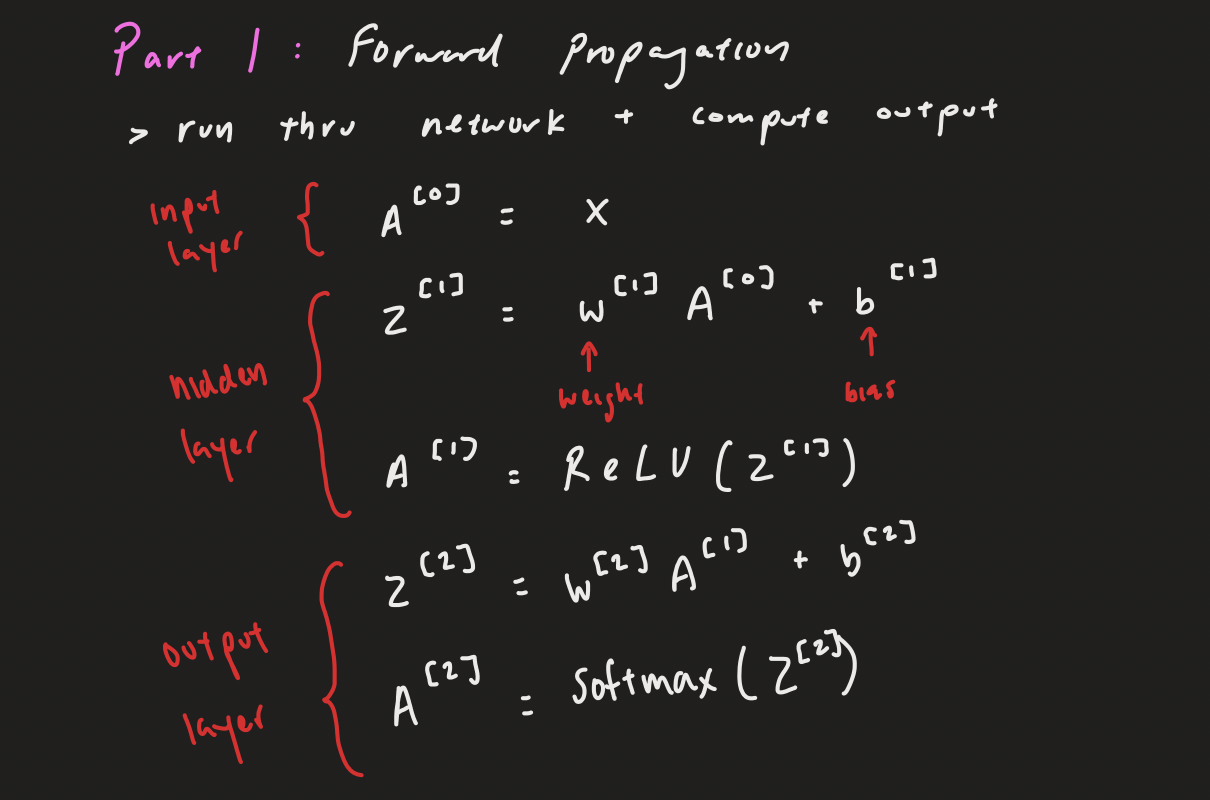 Part 1 : Forward Propagation
> run thru network + compute output
input
layer
{ A^[0] = X
hidden
layer
{ Z^[1] = W^[1] A^[0] + b^[1]
↑ weight ↑ bias
A^[1] = ReLU(Z^[1])
output
layer
{ Z^[2] = W^[2] A^[1] + b^[2]
A^[2] = softmax(Z^[2])